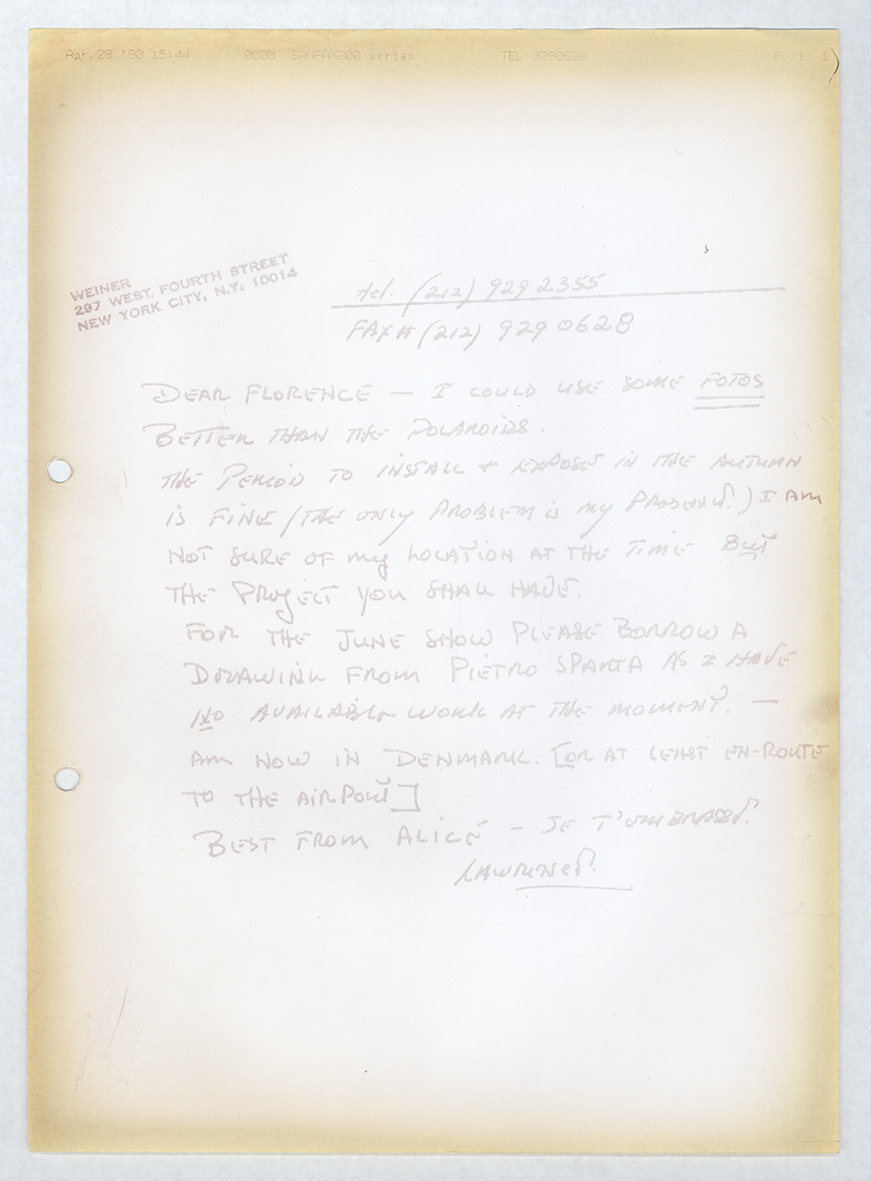 Apr.28 '90 15:44 0000 SANFAX200 series TEL 9290628 P. 1/ 1
WEINER
297 WEST, FOURTH STREET
NEW YORK CITY, N.Y. 10014
tel. (212) 929 2355
FAX # (212) 929 0628
DEAR FLORENCE — I COULD USE SOME FOTOS
BETTER THAN THE POLAROIDS.
THE PERIOD TO INSTALL + EXPOSE IN THE AUTUMN
IS FINE (THE ONLY PROBLEM IS MY PROBLEM.) I AM
NOT SURE OF MY LOCATION AT THE TIME BUT
THE PROJECT YOU SHALL HAVE.
FOR THE JUNE SHOW PLEASE BORROW A
DRAWING FROM PIETRO SPARTA AS I HAVE
NO AVAILABLE WORK AT THE MOMENT. —
AM NOW IN DENMARK. [OR AT LEAST EN-ROUTE
TO THE AIRPORT]
BEST FROM ALICE — JE T'EMBRASSE.
LAWRENCE.